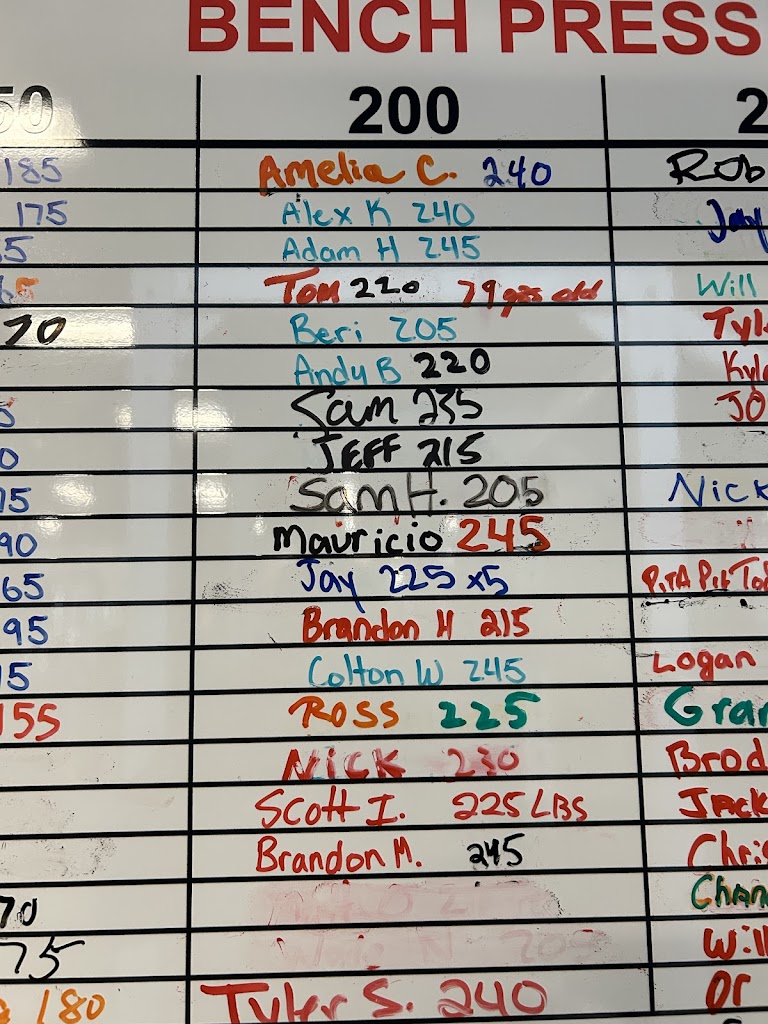 BENCH PRESS
50 200 2
185 Amelia C. 240 Rob
175 Alex K 240 Jay
5 Adam H 245
65 Tom 220 79 yrs old Will
70 Beri 205 Tyl
Andy B 220 Kyl
Sam 235 JO
0 JEFF 215
75 Sam H. 205 Nick
90 Mauricio 245
65 Jay 225 x5 PITA PIT
95 Brandon H 215
15 Colton W 245 Logan
155 ROSS 225 Gra
NICK 230 Brod
Scott I. 225 LBS Jack
Brandon M. 245 Chris
70 Chan
75 Will
180 Tyler S. 240 Or